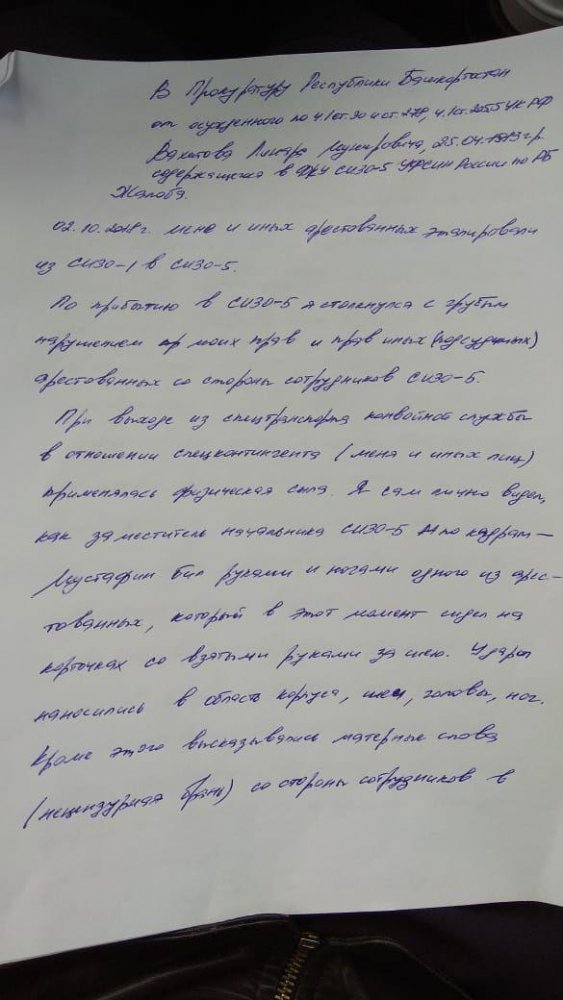 В Прокуратуру Республики Башкортостан
от осужденного по ч.1 ст.30 и ст.278, ч.1 ст.205.5 УК РФ
Вахитова Линара Мунировича, 25.04.1979 г.р.
содержащегося в ФКУ СИЗО-5 УФСИН России по РБ
Жалоба.
02.10.2018г. меня и иных арестованных этапировали
из СИЗО-1 в СИЗО-5.
По прибытию в СИЗО-5 я столкнулся с грубым
нарушением моих прав и прав иных (подсудимых)
арестованных со стороны сотрудников СИЗО-5.
При выходе из спецтранспорта конвойной службы
в отношении спецконтингента (меня и иных лиц)
применялась физическая сила. Я сам лично видел,
как заместитель начальника СИЗО-5 по кадрам –
Мустафин бил руками и ногами одного из арес-
тованных, который в этот момент сидел на
корточках со взятыми руками за шею. Удары
наносились в область корпуса, шеи, головы, ног.
Кроме этого высказывались матерные слова
(нецензурная брань) со стороны сотрудников в